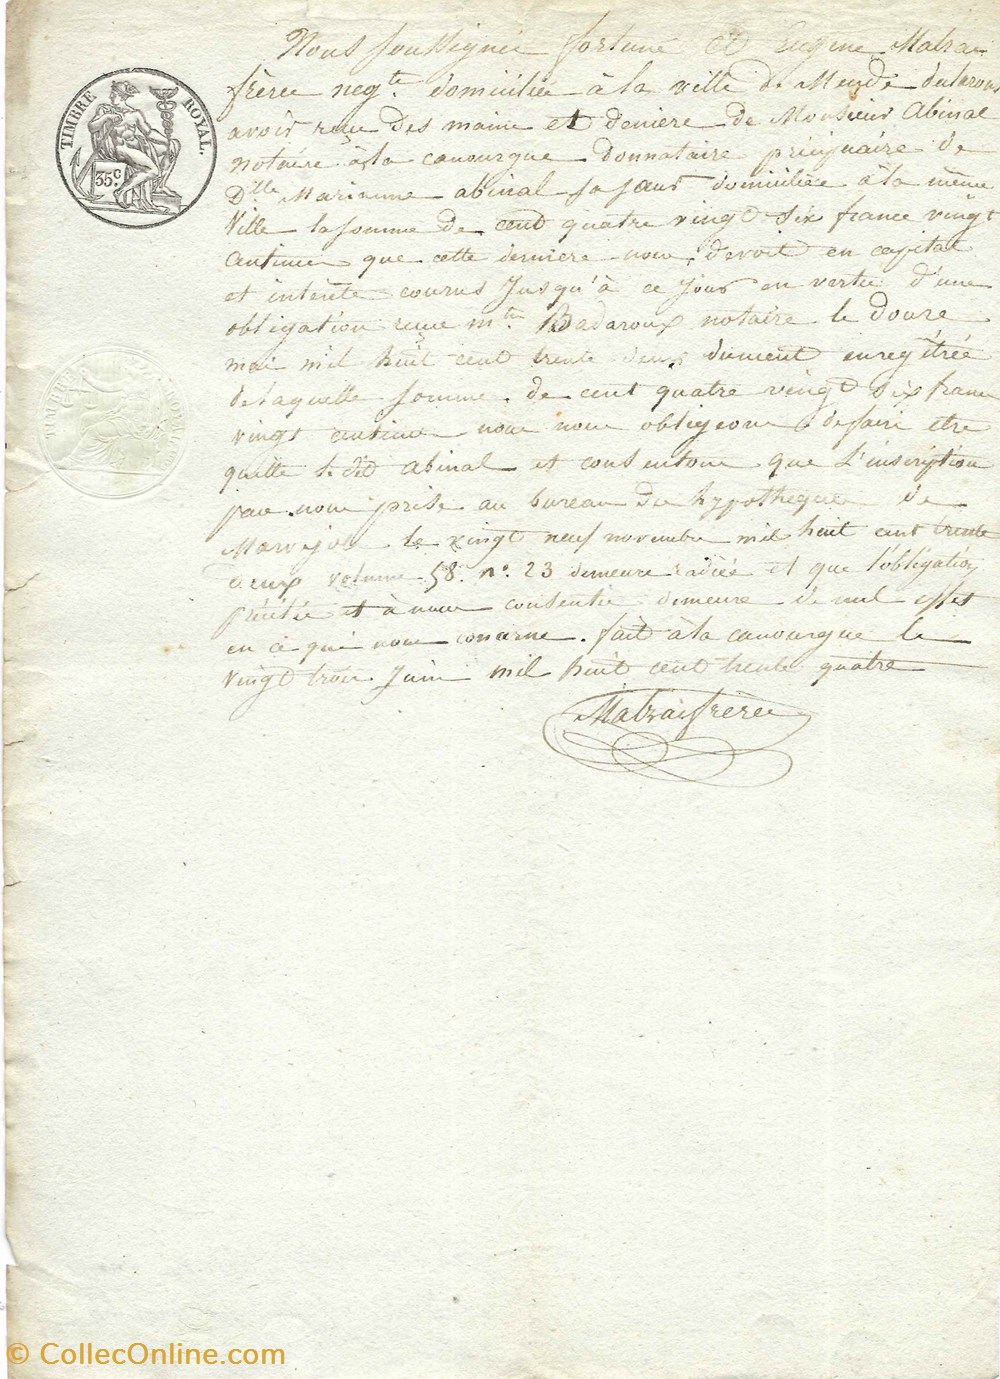 TIMBRE ROYAL.
35 c.
Nous soussignés fortuné et Eugène Malza
frères negts. domiciliés à la ville de Mende declarons
avoir reçu des mains et deniers de Monsieur Abinal
notaire à la canourgue donnataire précipuaire de
Dlle Marianne abinal sa soeur domiciliée à la même
Ville la somme de cent quatre vingt six francs vingt
centimes que cette dernière nous devoit en capital
et intérêts courus jusqu'à ce jour en vertu d'une
obligation reçue mtre Badaroux notaire le douze
mai mil huit cent trente deux dument enregitrée
de laquelle somme de cent quatre vingt six francs
vingt centimes nous nous obligeons de faire etre
quitte l. dit abinal et consentons que l'inscription
par nous prise au bureau des hypotheques de
Marvejols le vingt neuf novembre mil huit cent trente
deux volume 58. no. 23 demeure radiée et que l'obligation
précitée et à nous consentie demeure de nul effet
en ce qui nous concerne. fait à la canourgue le
vingt trois juin mil huit cent trente quatre
Malzac frères
TIMBRE ROYAL
© CollecOnline.com